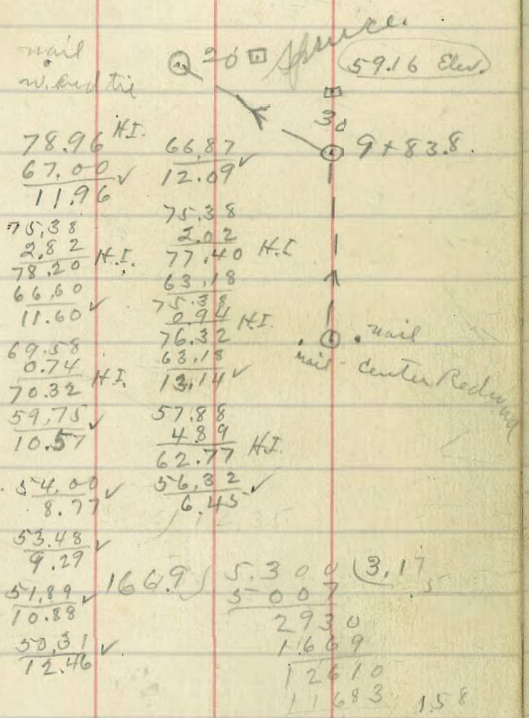 nail
20 Spruce.
59.16 Elev.
30
9+83.8.
78.96 H.I.
67.00 ✓
11.96
75.38
2.82
78.20 H.I.
66.60
11.60 ✓
69.58
0.74
70.32 H.I.
59.75 ✓
10.57
54.00
8.77 ✓
53.48
9.29 ✓
51.89
10.88 ✓
50.31
12.46 ✓
66.87
12.09 ✓
75.38
2.02
77.40 H.I.
63.18
75.38
0.94
76.32 H.I.
63.18
13.14 ✓
57.88
4.89
62.77 H.I.
56.32
6.45 ✓
nail
nail - Center Redwood
1669 5.300 3.17
5007
2930
1669
12610
11683 158